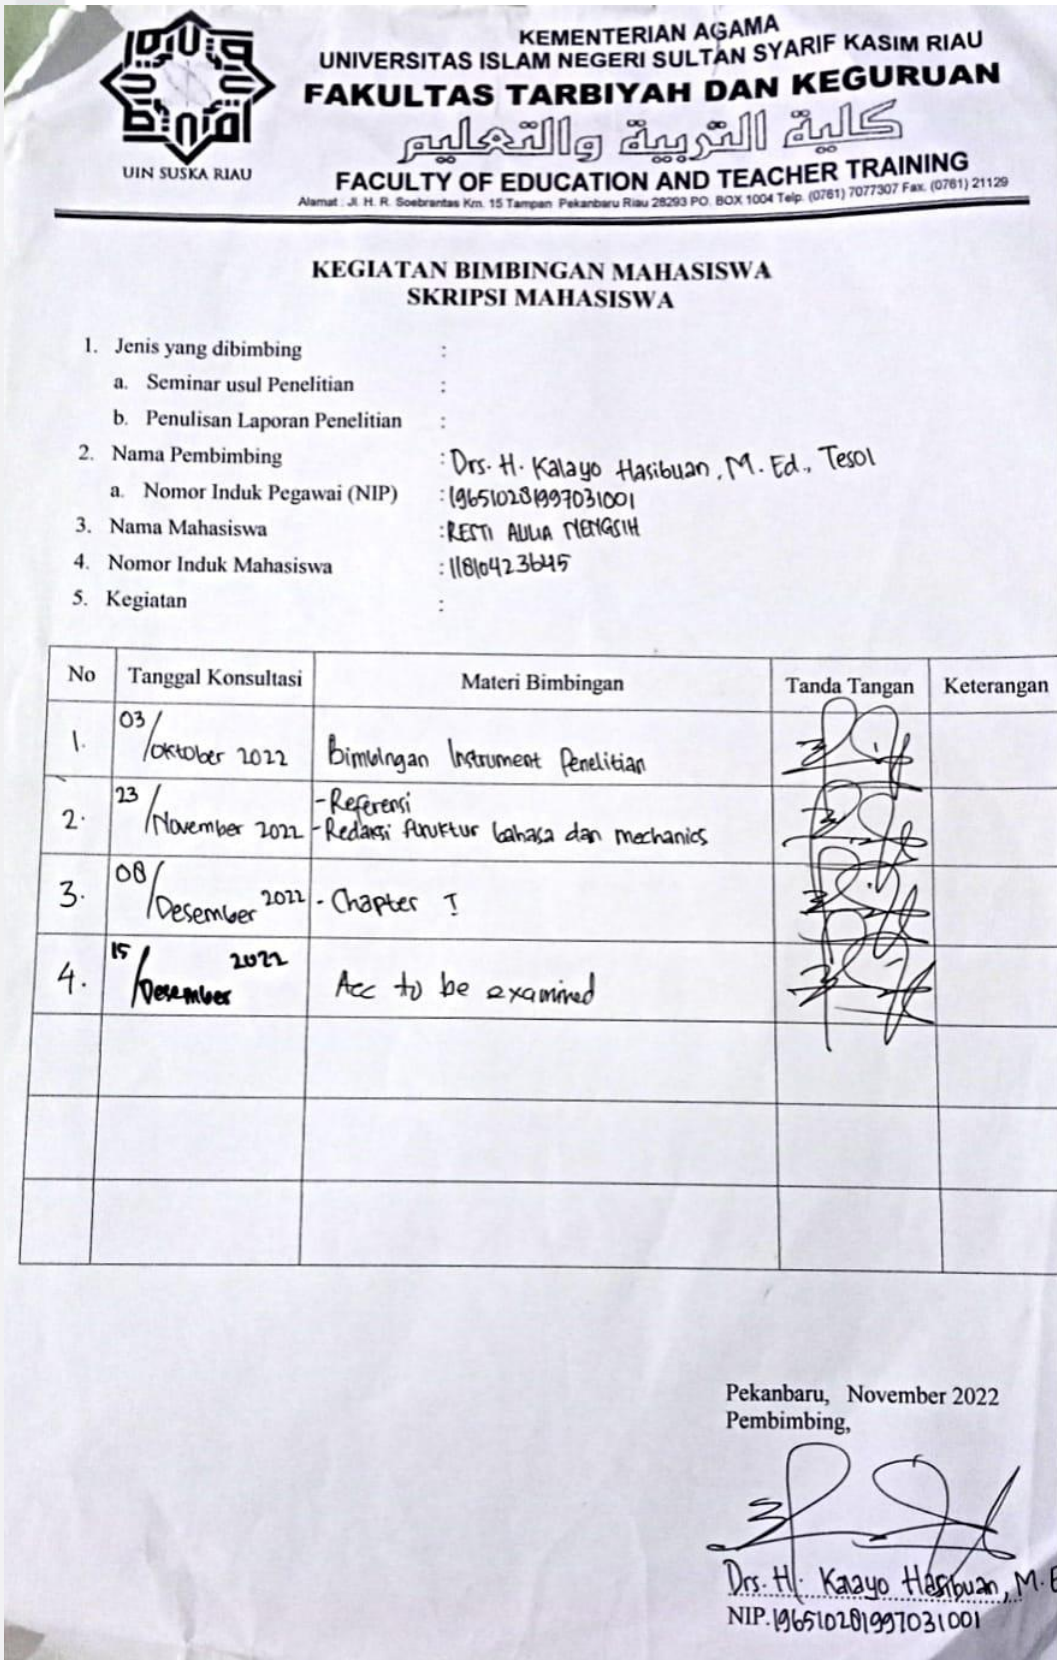 UIN SUSKA RIAU
KEMENTERIAN AGAMA
UNIVERSITAS ISLAM NEGERI SULTAN SYARIF KASIM RIAU
FAKULTAS TARBIYAH DAN KEGURUAN
كلية التربية والتعليم
FACULTY OF EDUCATION AND TEACHER TRAINING
Alamat : Jl. H. R. Soebrantas Km. 15 Tampan Pekanbaru Riau 28293 PO. BOX 1004 Telp. (0761) 7077307 Fax. (0761) 21129
KEGIATAN BIMBINGAN MAHASISWA
SKRIPSI MAHASISWA
1. Jenis yang dibimbing :
a. Seminar usul Penelitian :
b. Penulisan Laporan Penelitian :
2. Nama Pembimbing : Drs. H. Kalayo Hasibuan, M. Ed., Tesol
a. Nomor Induk Pegawai (NIP) : 196510281997031001
3. Nama Mahasiswa : RESTI AULIA NENGSIH
4. Nomor Induk Mahasiswa : 11810423645
5. Kegiatan :
No Tanggal Konsultasi Materi Bimbingan Tanda Tangan Keterangan
1. 03/Oktober 2022 Bimbingan Instrument Penelitian
2. 23/November 2022 -Referensi
-Redaksi struktur bahasa dan mechanics
3. 08/Desember 2022 - Chapter I
4. 15/Desember 2022 Acc to be examined
Pekanbaru, November 2022
Pembimbing,
Drs. H. Kalayo Hasibuan, M. E
NIP. 196510281997031001